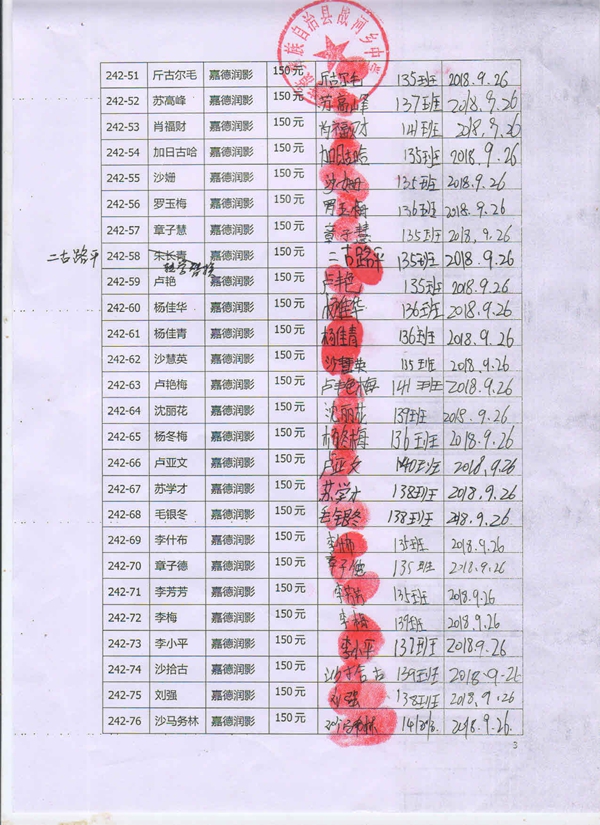 族自治县战河乡中
242-51 斤古尔毛 嘉德润影 150元 斤古尔毛 135班 2018.9.26
242-52 苏高峰 嘉德润影 150元 苏高峰 137班 2018.9.26
242-53 肖福财 嘉德润影 150元 肖福财 141班 2018.9.26
242-54 加日古哈 嘉德润影 150元 加日古哈 135班 2018.9.26
242-55 沙姗 嘉德润影 150元 沙姗 135班 2018.9.26
242-56 罗玉梅 嘉德润影 150元 罗玉梅 136班 2018.9.26
242-57 章子慧 嘉德润影 150元 章子慧 135班 2018.9.26
二古路平 242-58 朱长青 嘉德润影 150元 二古路平 135班 2018.9.26
242-59 卢艳 嘉德润影 150元 卢艳 135班 2018.9.26
242-60 杨佳华 嘉德润影 150元 杨佳华 136班 2018.9.26
242-61 杨佳青 嘉德润影 150元 杨佳青 136班 2018.9.26
242-62 沙慧英 嘉德润影 150元 沙慧英 135班 2018.9.26
242-63 卢艳梅 嘉德润影 150元 卢艳梅 141班 2018.9.26
242-64 沈丽花 嘉德润影 150元 沈丽花 139班 2018.9.26
242-65 杨冬梅 嘉德润影 150元 杨冬梅 136班 2018.9.26
242-66 卢亚文 嘉德润影 150元 卢亚文 140班 2018.9.26
242-67 苏学才 嘉德润影 150元 苏学才 138班 2018.9.26
242-68 毛银冬 嘉德润影 150元 毛银冬 138班 2018.9.26
242-69 李什布 嘉德润影 150元 135班 2018.9.26
242-70 章子德 嘉德润影 150元 章子德 135班 2018.9.26
242-71 李芳芳 嘉德润影 150元 李芳芳 135班 2018.9.26
242-72 李梅 嘉德润影 150元 李梅 139班 2018.9.26
242-73 李小平 嘉德润影 150元 李小平 137班 2018.9.26
242-74 沙拾古 嘉德润影 150元 沙拾古 139班 2018.9.26
242-75 刘强 嘉德润影 150元 刘强 138班 2018.9.26
242-76 沙马务林 嘉德润影 150元 沙马务林 2018.9.26